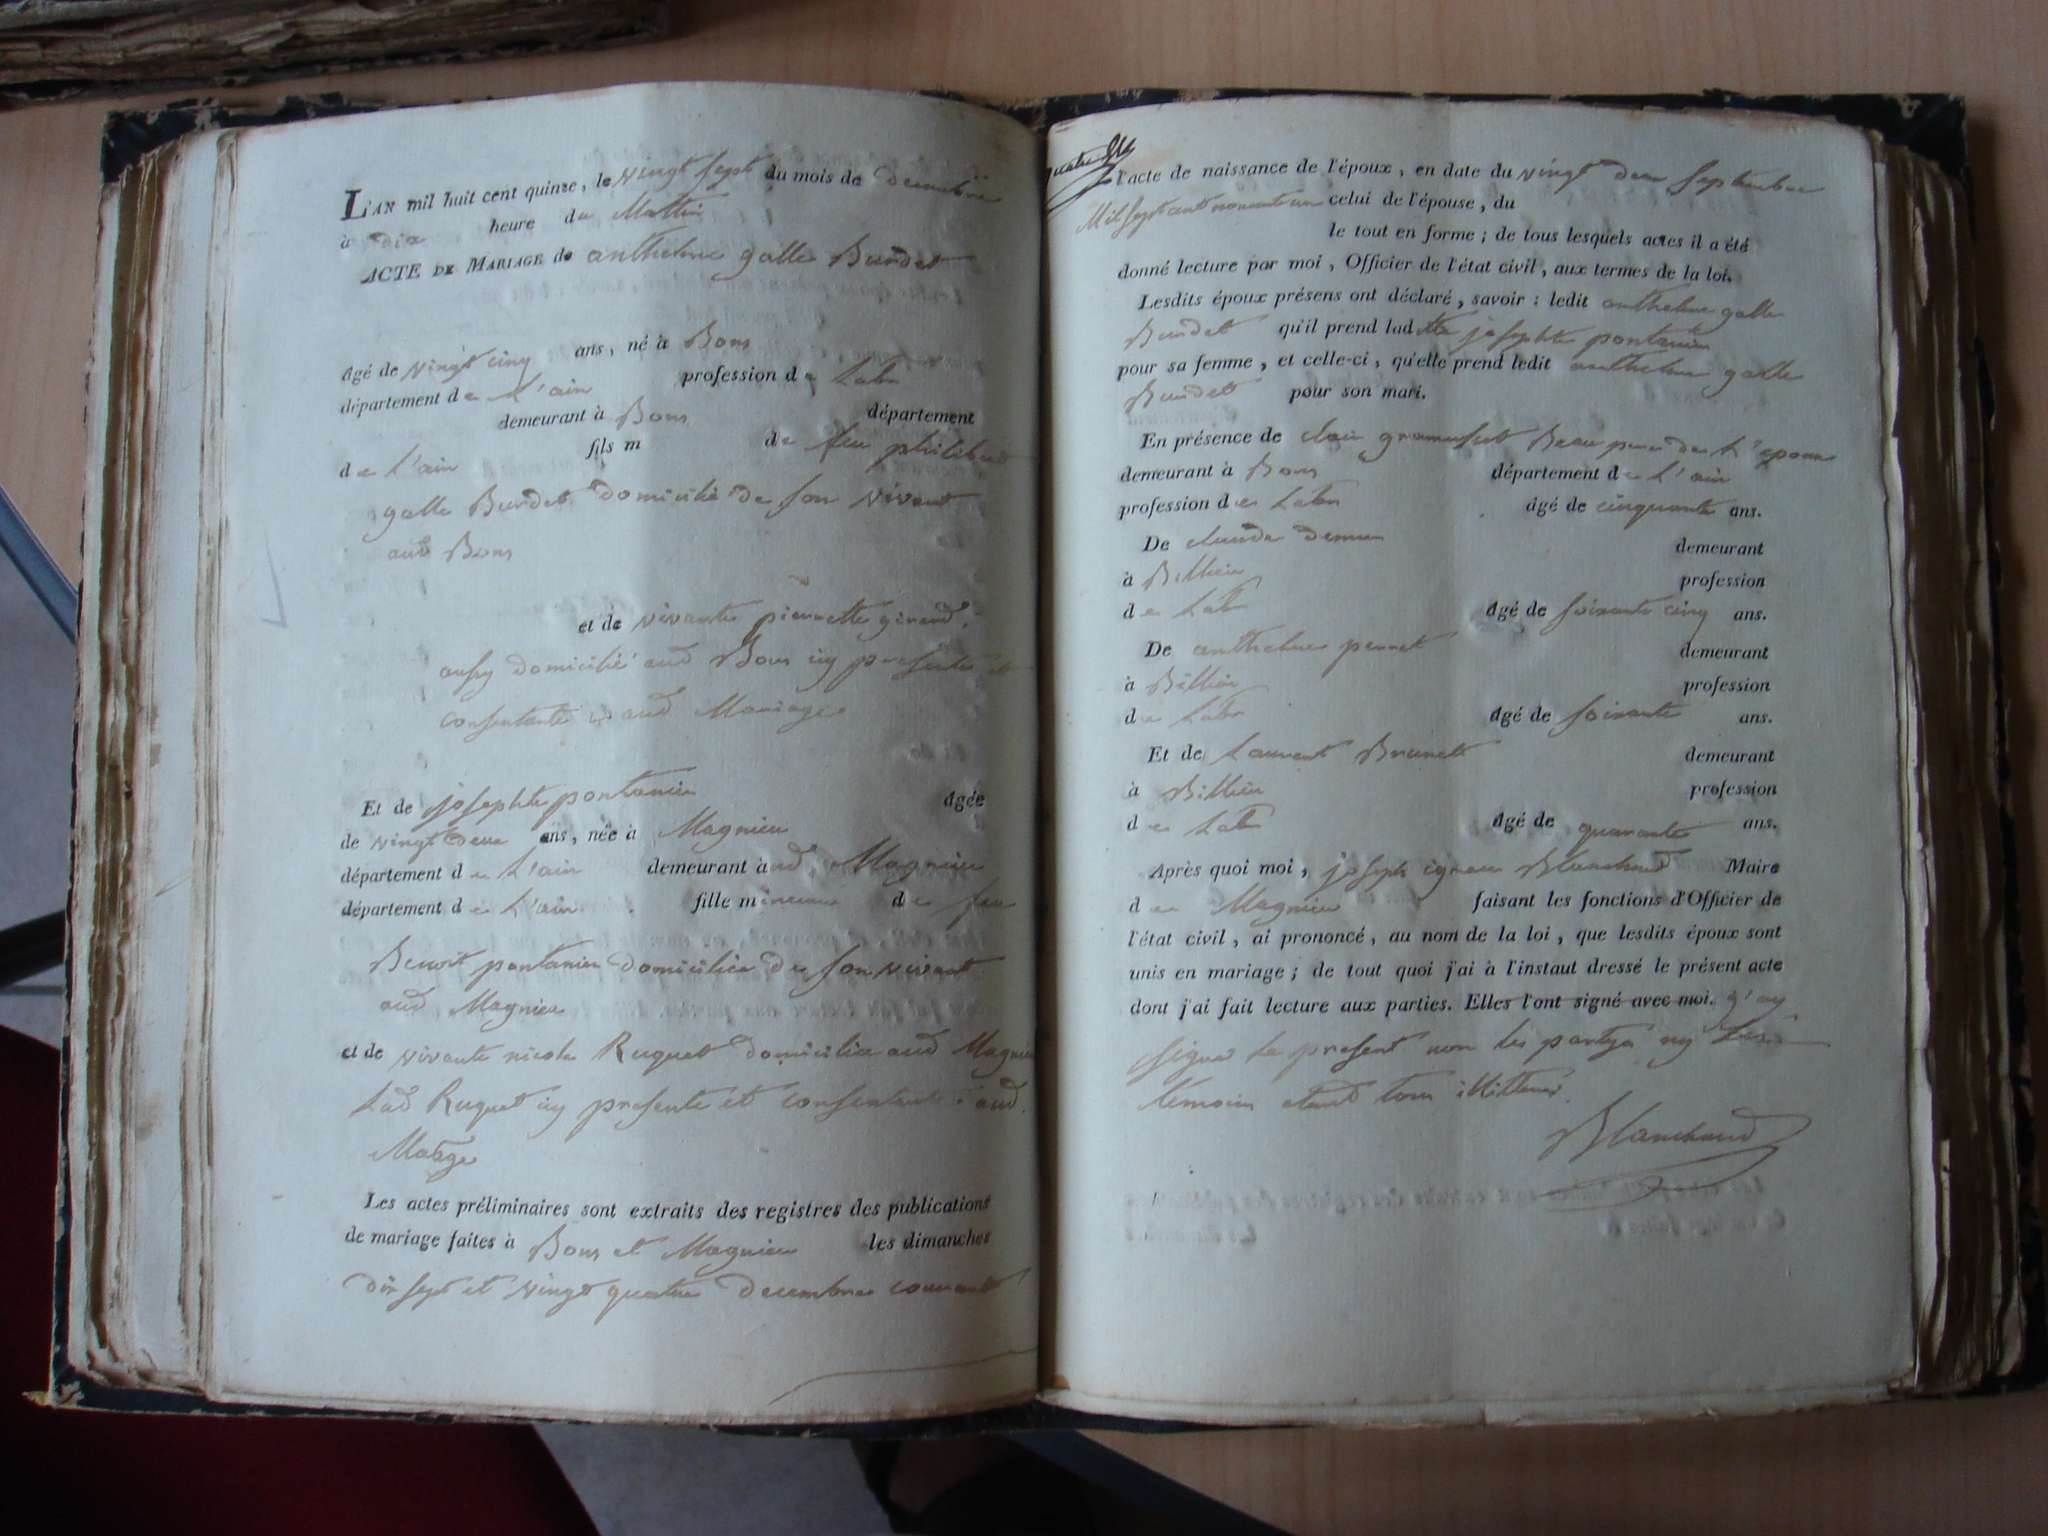 L'AN mil huit cent quinze, le vingt sept du mois de Decembre
à dix heure du Mattin
ACTE DE MARIAGE de anthelme galle Burdet
âgé de vingt cinq ans, né à Bons
département de L'ain profession de Labr
demeurant à Bons département
de L'ain fils m de feu philibert
galle Burdet domicilié de son vivant
aud Bons
et de vivante pierrette girard,
aussy domicilié aud Bons icy presente et
consentante aud Mariage
Et de josephte pontanier âgée
de vingt deux ans, née à Magnieu
département de L'ain demeurant aud Magnieu
département de L'ain fille mineure de feu
Benoit pontanier domicilié de son vivant
aud Magnieu
et de vivante nicole Ruquet domiciliée aud Magnieu
Lad Ruquet icy presente et consentante aud.
Marge
Les actes préliminaires sont extraits des registres des publications
de mariage faites à Bons et Magnieu les dimanches
dix sept et vingt quatre Decembre courant
l'acte de naissance de l'époux, en date du vingt deux Septembre
Mil sept cent nonante un celui de l'épouse, du
le tout en forme; de tous lesquels actes il a été
donné lecture par moi, Officier de l'état civil, aux termes de la loi.
Lesdits époux présens ont déclaré, savoir: ledit anthelme galle
Burdet qu'il prend ladtte josephte pontanier
pour sa femme, et celle-ci, qu'elle prend ledit anthelme galle
Burdet pour son mari.
En présence de Beau pere de L'epoux
demeurant à Bons département de L'ain
profession de Labr âgé de cinquante ans.
De claude demeurant
à Billieu profession
de Labr âgé de soixante cinq ans.
De anthelme perret demeurant
à Billieu profession
de Labr âgé de soixante ans.
Et de Laurent Brunet demeurant
à Billieu profession
de Labr âgé de quarante ans.
Après quoi moi, joseph ignace Blanchard Maire
de Magnieu faisant les fonctions d'Officier de
l'état civil, ai prononcé, au nom de la loi, que lesdits époux sont
unis en mariage; de tout quoi j'ai à l'instant dressé le présent acte
dont j'ai fait lecture aux parties. Elles l'ont signé avec moi. j'ay
signé Le present non les partye ny Les
temoins etant tous illitteré
Blanchard